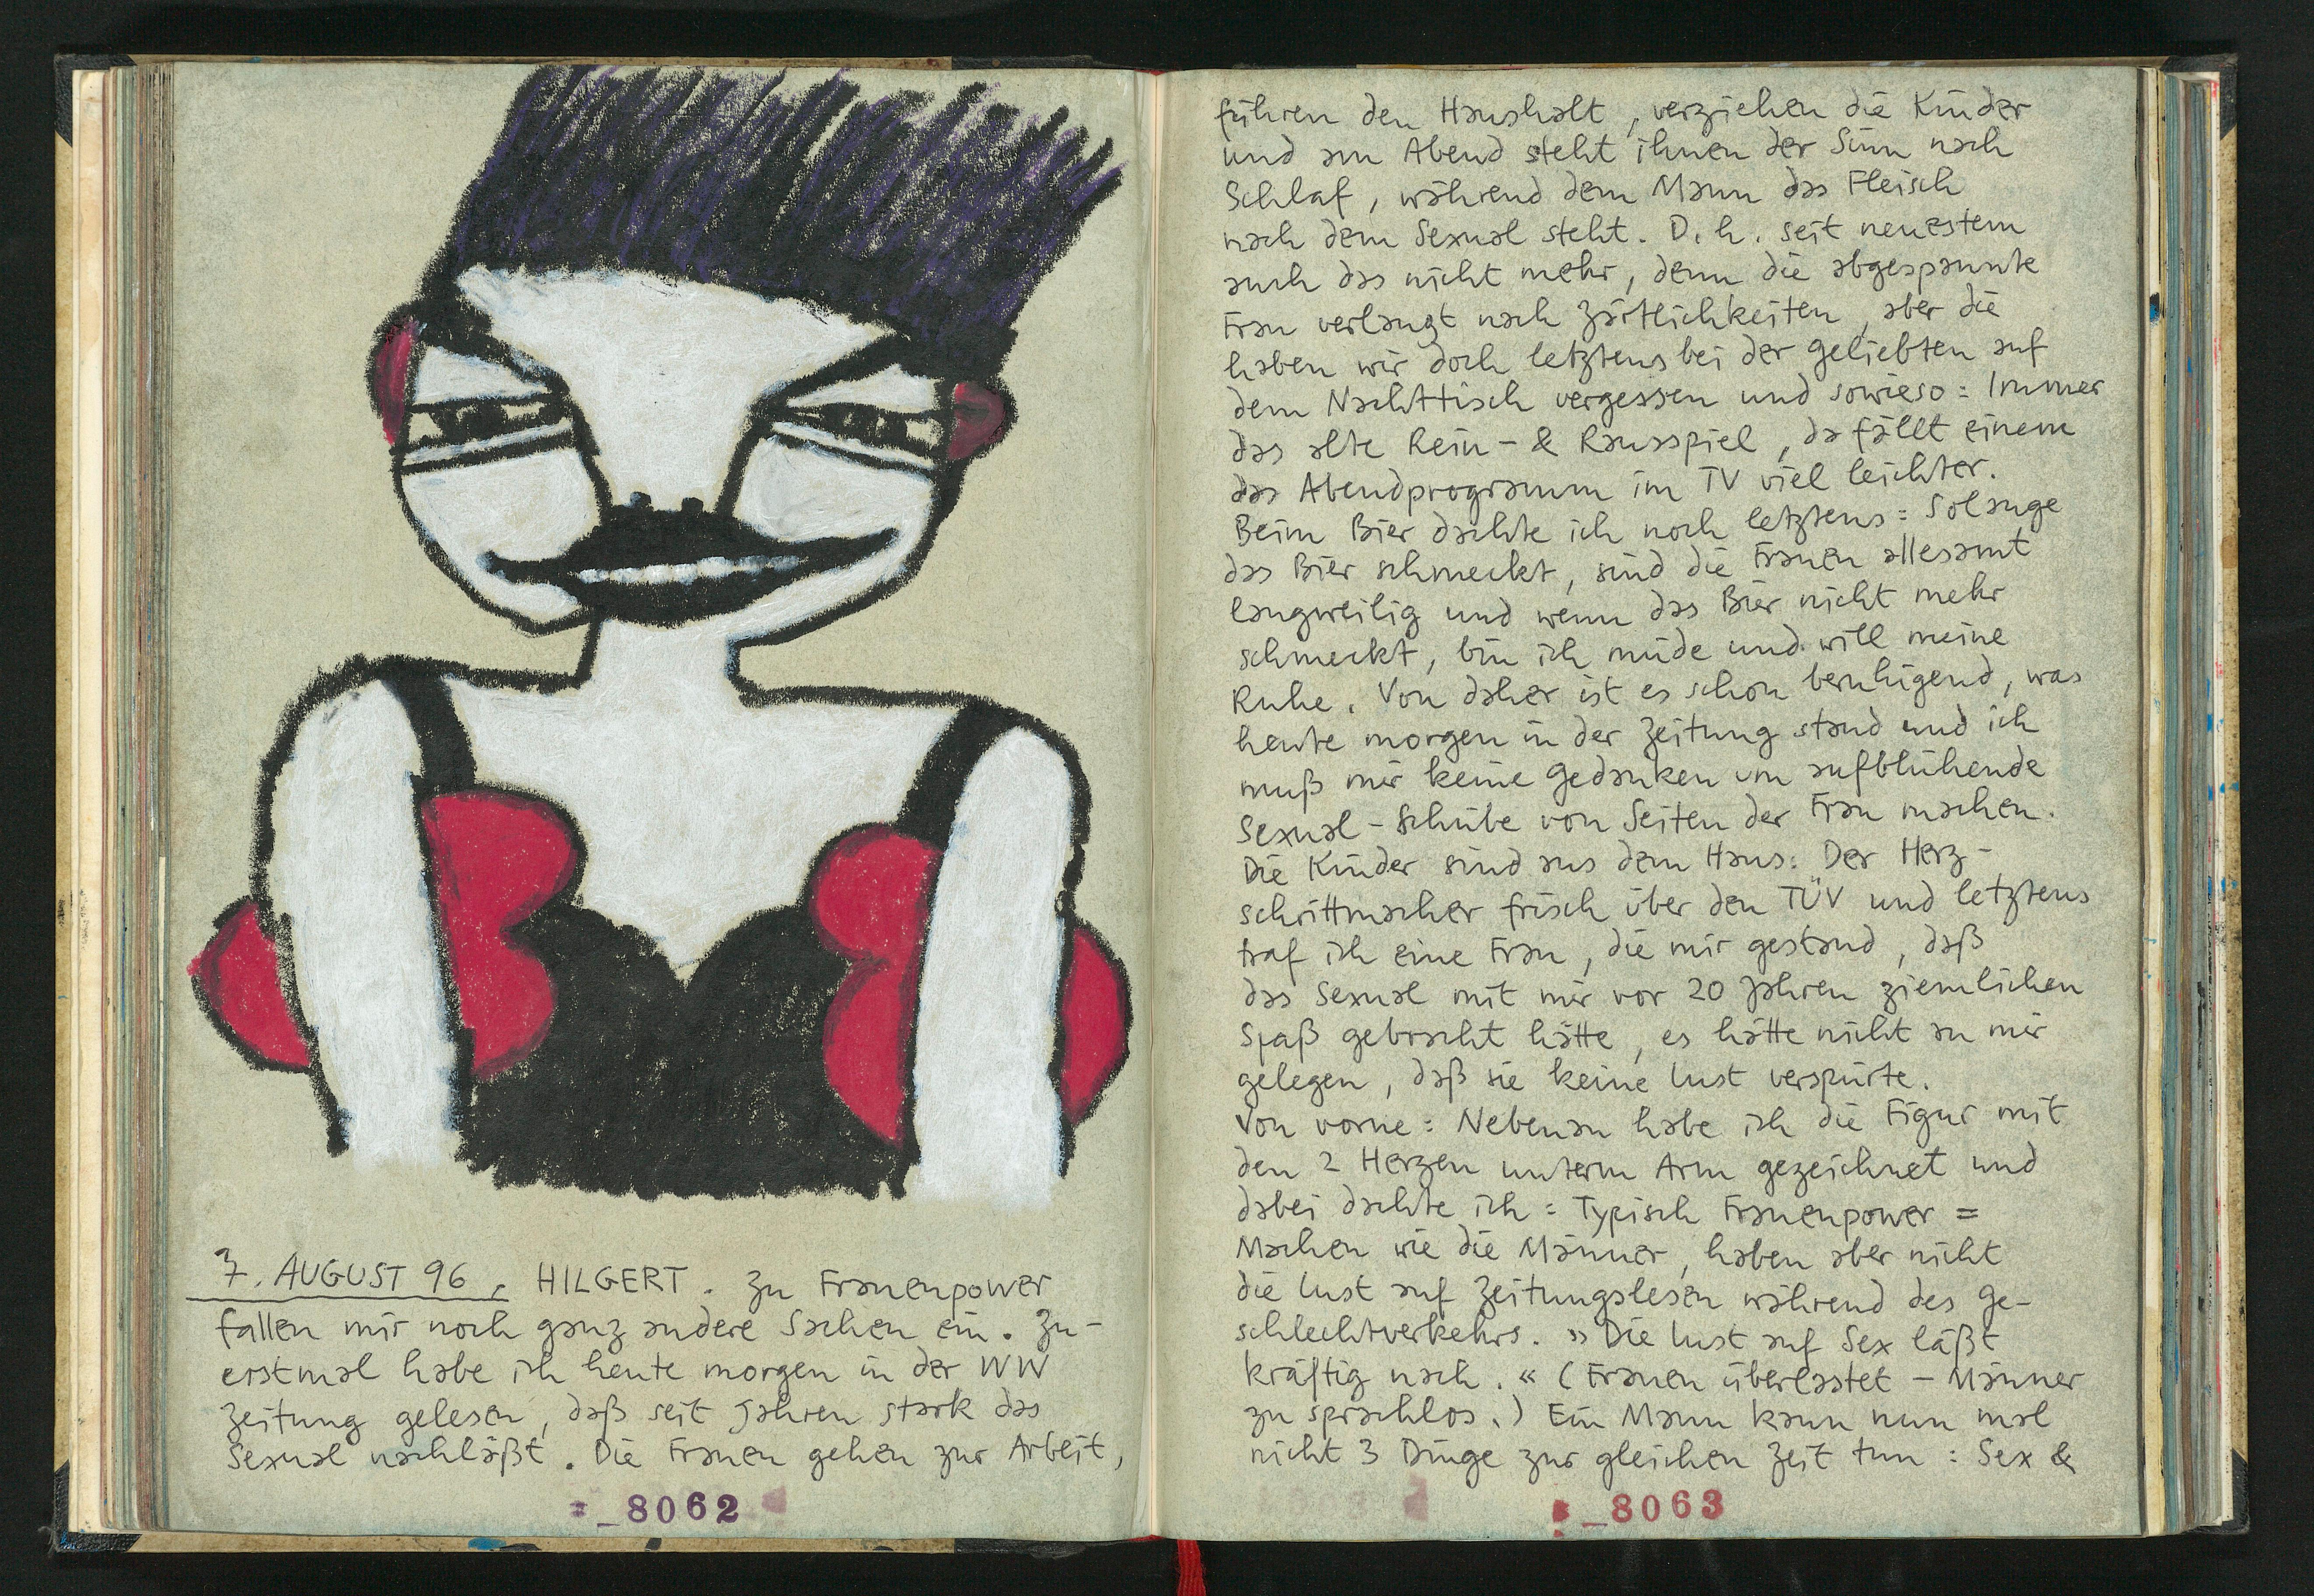 7. AUGUST 96, HILGERT. Zu Frauenpower
fallen mir noch ganz andere Sachen ein. Zu-
erstmal habe ich heute morgen in der WW
Zeitung gelesen, daß seit Jahren stark das
Sexual nachläßt. Die Frauen gehen zur Arbeit,
_8062
führen den Haushalt, verziehen die Kinder
und am Abend steht ihnen der Sinn nach
Schlaf, während dem Mann das Fleisch
nach dem Sexual steht. D.h. seit neuestem
auch das nicht mehr, denn die abgespannte
Frau verlangt nach Zärtlichkeiten, aber die
haben wir doch letztens bei der Geliebten auf
dem Nachttisch vergessen und sowieso: Immer
das alte Rein- & Rausspiel, da fällt einem
das Abendprogramm im TV viel leichter.
Beim Bier dachte ich noch letztens: Solange
das Bier schmeckt, sind die Frauen allesamt
langweilig und wenn das Bier nicht mehr
schmeckt, bin ich müde und will meine
Ruhe. Von daher ist es schon beruhigend, was
heute morgen in der Zeitung stand und ich
muß mir keine Gedanken um aufblühende
Sexual-Schübe von Seiten der Frau machen.
Die Kinder sind aus dem Haus: Der Herz-
schrittmacher frisch über den TÜV und letztens
traf ich eine Frau, die mir gestand, daß
das Sexual mit mir vor 20 Jahren ziemlichen
Spaß gebracht hätte, es hätte nicht an mir
gelegen, daß sie keine Lust verspürte.
Von vorne: Nebenan habe ich die Figur mit
den 2 Herzen unterm Arm gezeichnet und
dabei dachte ich: Typisch Frauenpower =
Machen wie die Männer, haben aber nicht
die Lust auf Zeitungslesen während des Ge-
schlechtverkehrs. »Die Lust auf Sex läßt
kräftig nach.« (Frauen überlastet - Männer
zu sprachlos.) Ein Mann kann nun mal
nicht 3 Dinge zur gleichen Zeit tun: Sex &
_8063